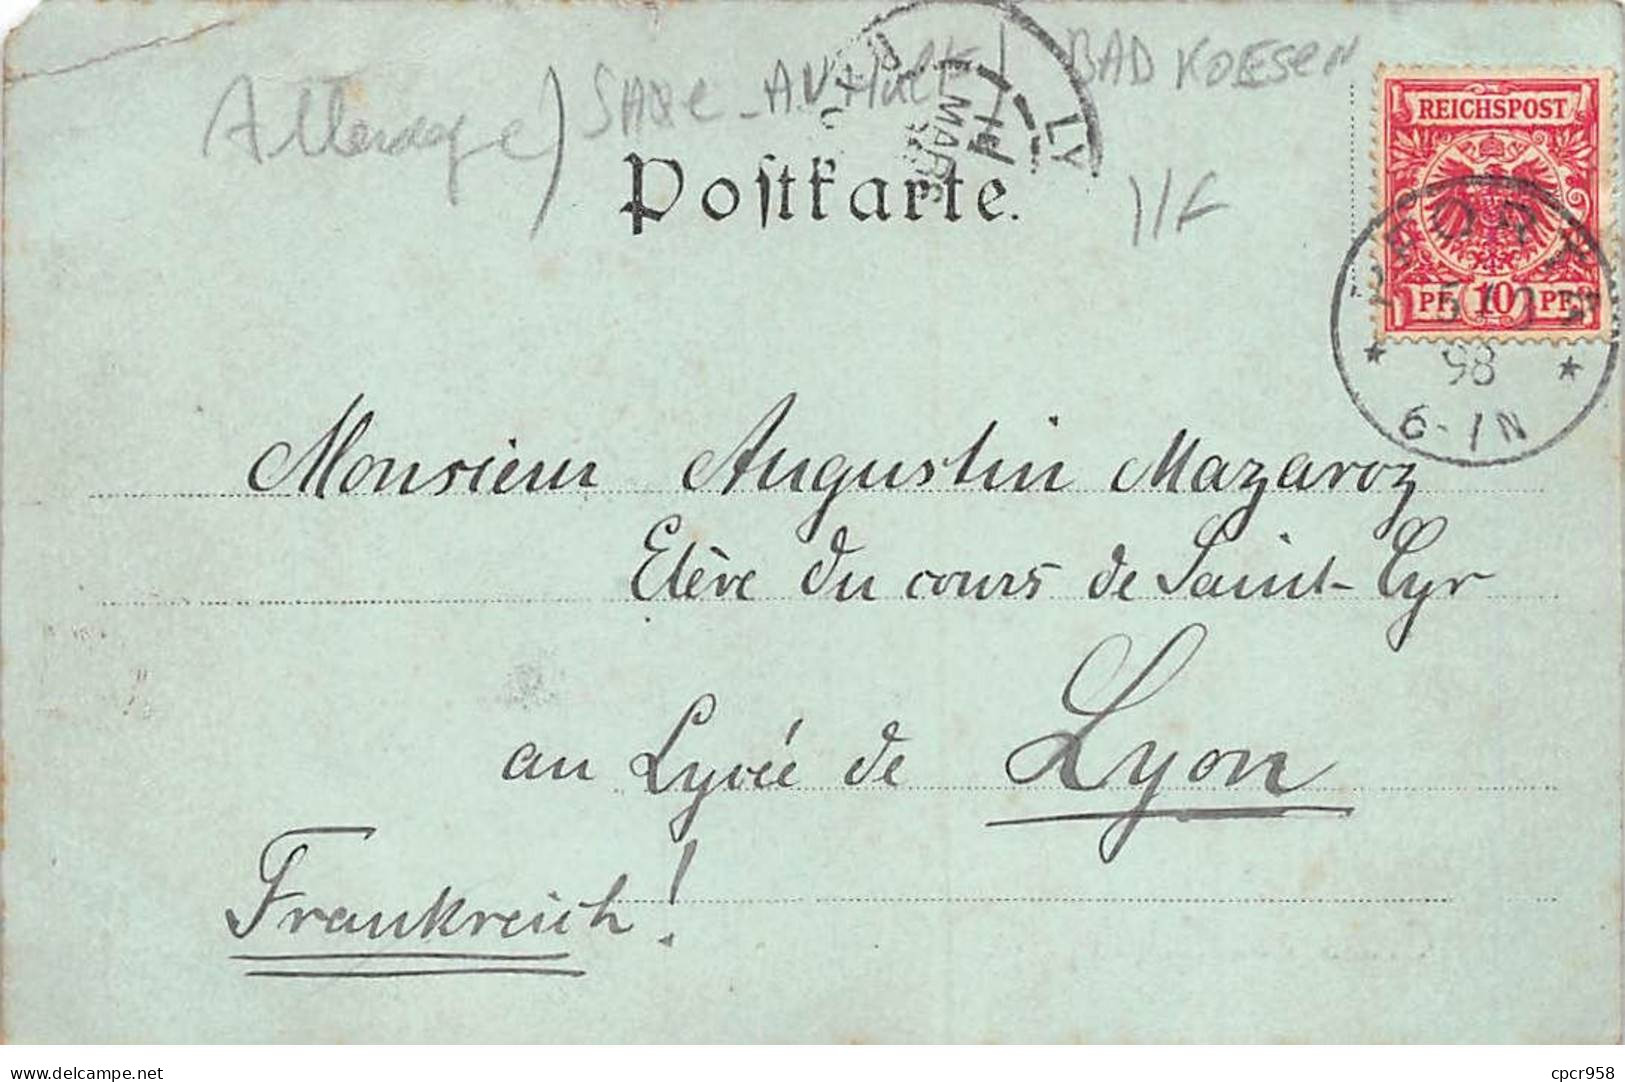 Allemagne) SAXE-ANHALT / BAD KOESEN
LY
MARS
Postkarte.
REICHSPOST
PF 10 PF
PFORTA
98
6-7N
Monsieur Augustin Mazaroz
Elève du cours de Saint-Cyr
au Lycée de Lyon
Frankreich!
delcampe.net
cpcr958